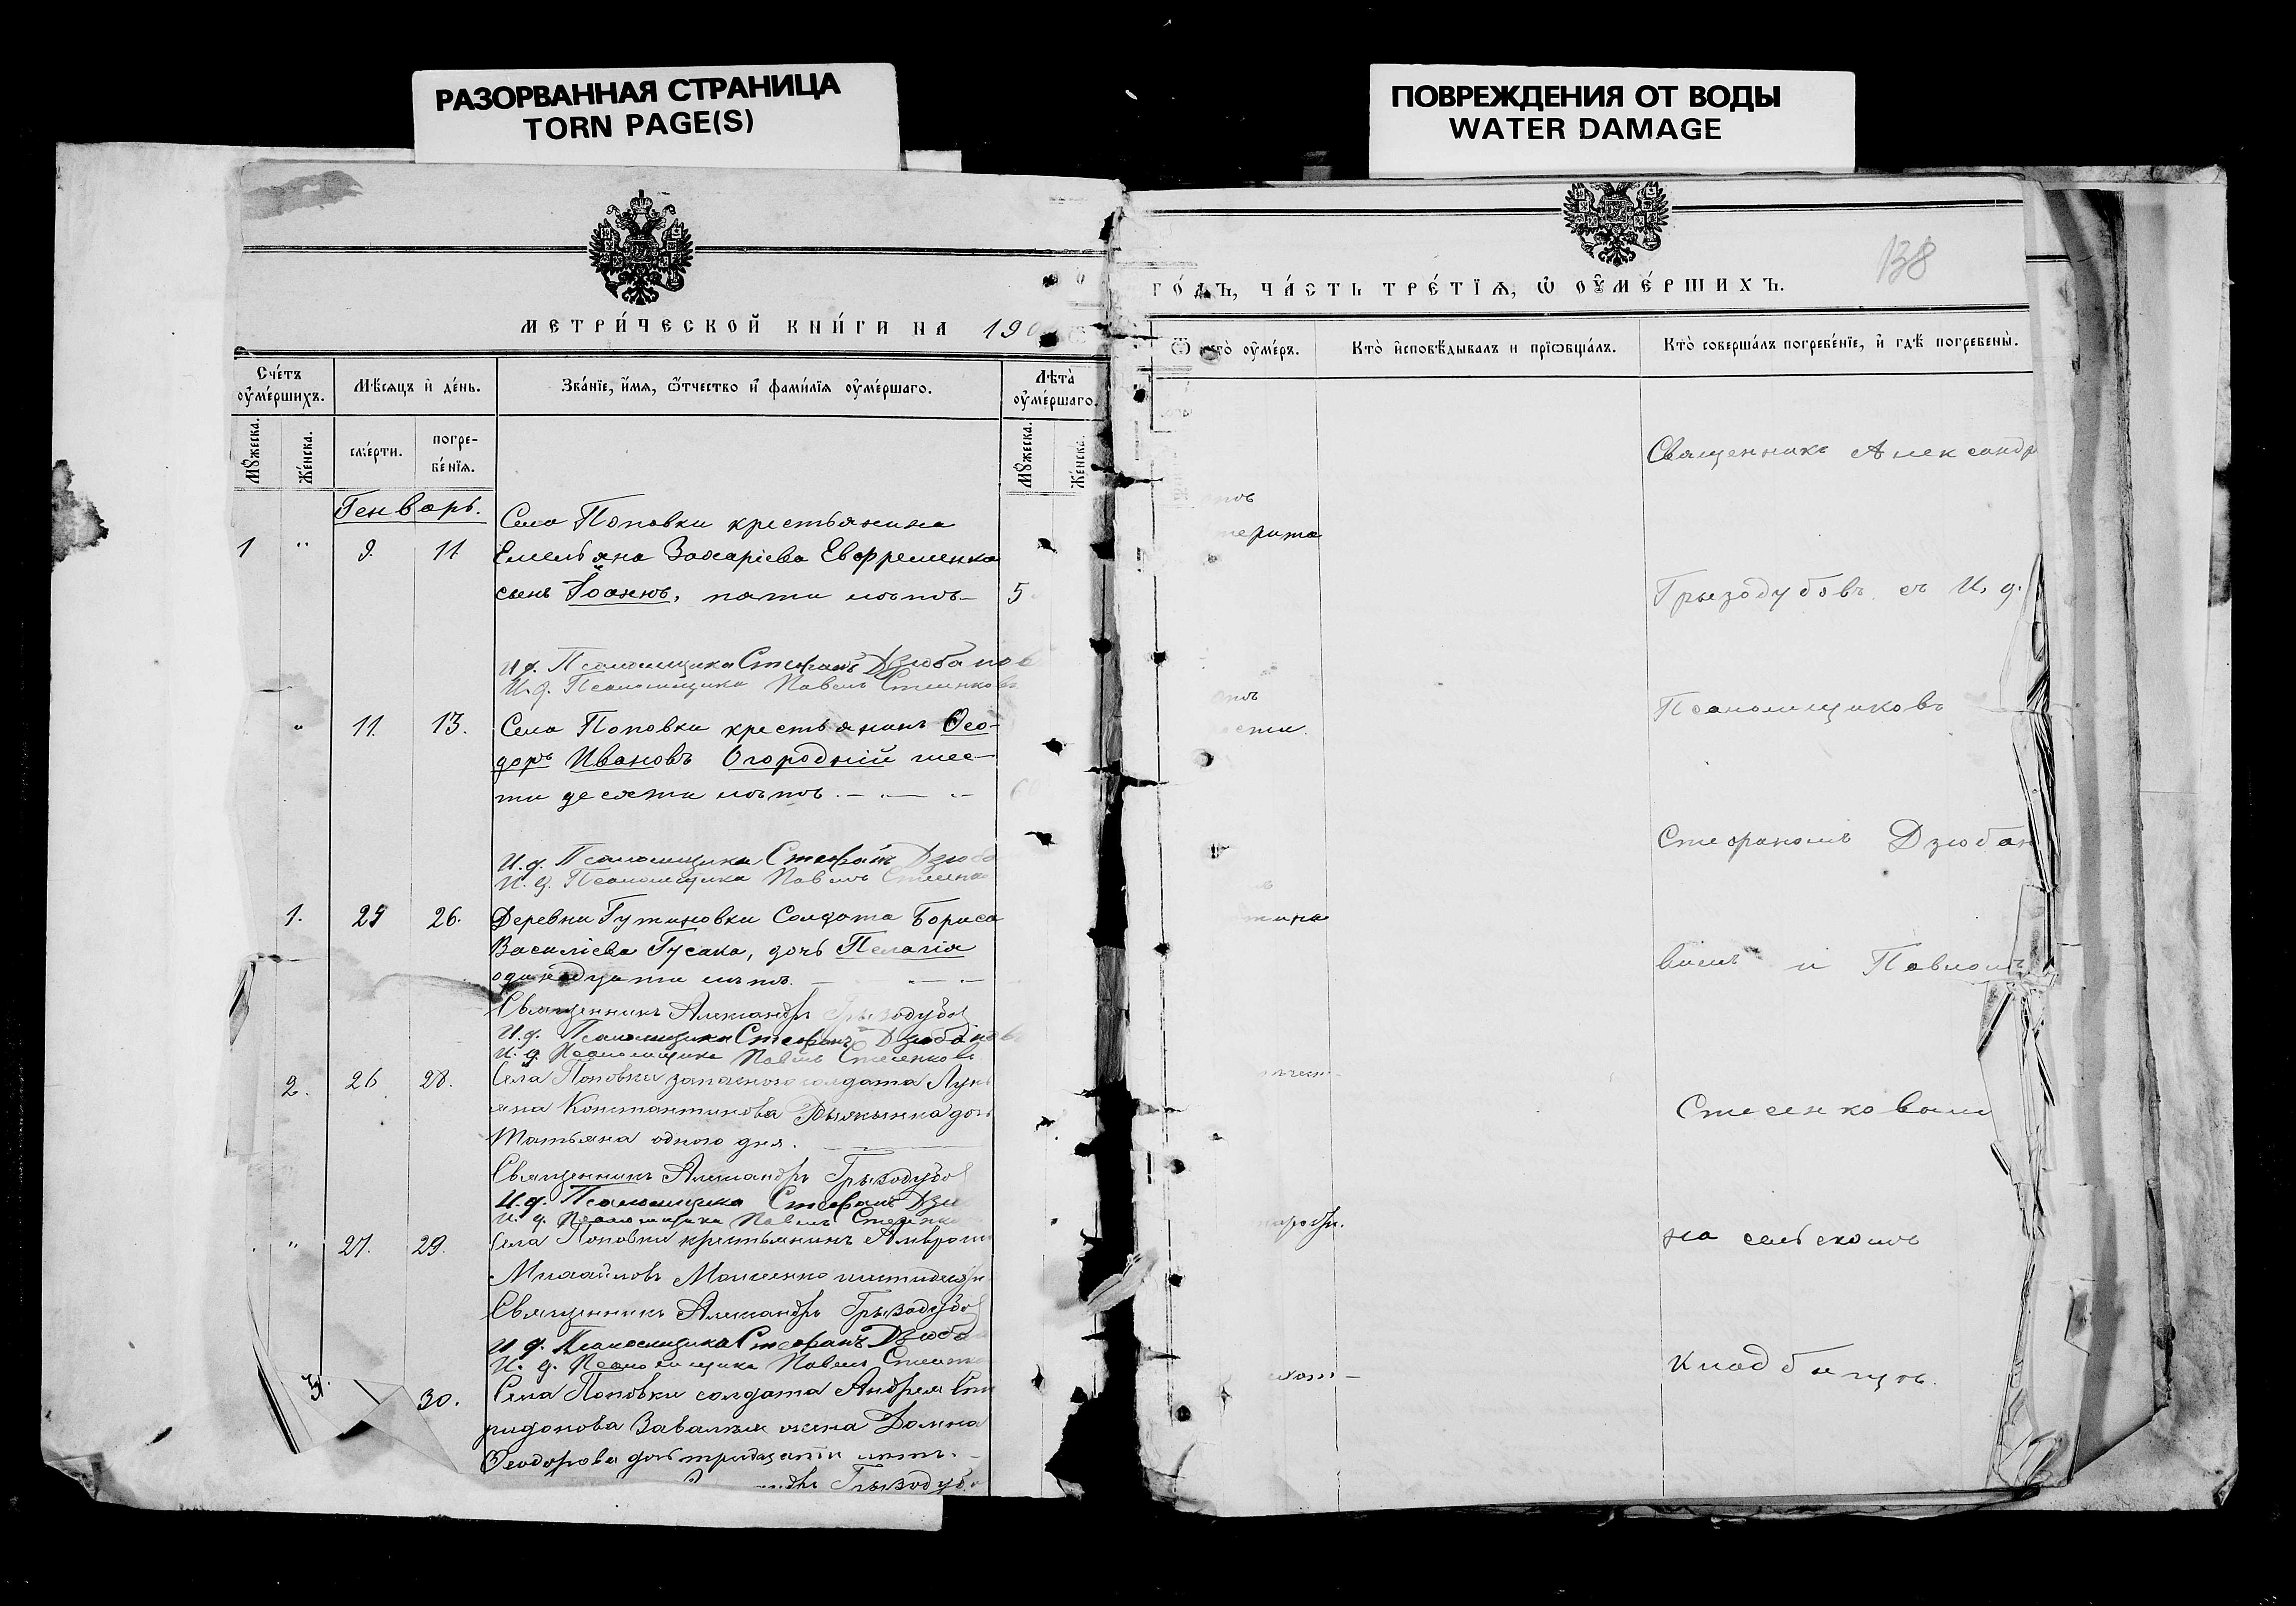 РАЗОРВАННАЯ СТРАНИЦА
TORN PAGE(S)
ПОВРЕЖДЕНИЯ ОТ ВОДЫ
WATER DAMAGE
МЕТРИ́ЧЕСКОЙ КНИ́ГИ НА 190
Сче́тъ оу҆ме́ршихъ.
Мѣсяцъ и҆ де́нь.
Зва́нїе, и҆́мя, ѿтчество и҆ фами́лїя оу҆ме́ршаго.
Лѣта̀ оу҆ме́ршаго.
Мꙋ́жеска.
Же́нска.
сме́рти.
погре-
бе́нїя.
Мꙋ́жеска.
Же́нска.
Генварь.
Села Поповки крестьянина
1 " 9. 11. Емельяна Захаріева Евфременка
сынъ Іоаннъ, пяти лѣтъ — 5
И. д. Псаломщика Стефанъ Дзюбанов
И. д. Псаломщика Павелъ Стесенковъ
" 11. 13. Села Поповки крестьянинъ Ѳео-
доръ Ивановъ Огородній шес-
ти десяти лѣтъ. —
И. д. Псаломщика Стефанъ Дзюба
И. д. Псаломщика Павелъ Стесенко
1. 26. Деревни Гутиновки Солдата Бориса
Василіева Гусака, дочь Пелагія
одинадцати лѣтъ. —
Священникъ Александръ Грызодубо
И. д. Псаломщика Стефанъ Дзюбанов
И. д. Псаломщика Павелъ Стесенковъ
2. 26. 28. Села Поповки запаснаго солдата Лукь
яна Константинова дочь
Татьяна одного дня.
Священникъ Александръ Грызодубо
И. д. Псаломщика Стефанъ Дзю
И. д. Псаломщика Павелъ Стесенко
" 27. 29. Села Поповки крестьянинъ Амвросі
Михайловъ Моисеенко
Священникъ Александръ Грызодубо
И. д. Псаломщика Стефанъ Дзюба
И. д. Псаломщика Павелъ Стесенко
3. 30. Села Поповки солдата Андрея Спи
ридонова жена Домна
Ѳеодорова тридцати лѣтъ. —
Грызодубо
138
ГО́ДЪ, ЧА́СТЬ ТРЕ́ТЇѦ, Ѡ҆ ОУ҆МЕ́РШИХЪ.
оу҆ме́ръ.
Кто̀ и҆сповѣ́дывалъ и прїѡбща́лъ.
Кто̀ соверша́лъ погребе́нїе, и҆ гдѣ̀ погребены̀.
Священникъ Александр
Грызодубовъ съ И. д.
Псаломщиковъ
Стефаномъ Дзюбан
вымъ и Павломъ
Стесенковымъ
на сельскомъ
кладбищѣ.